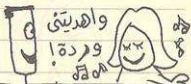 واهديتنى
وردة!